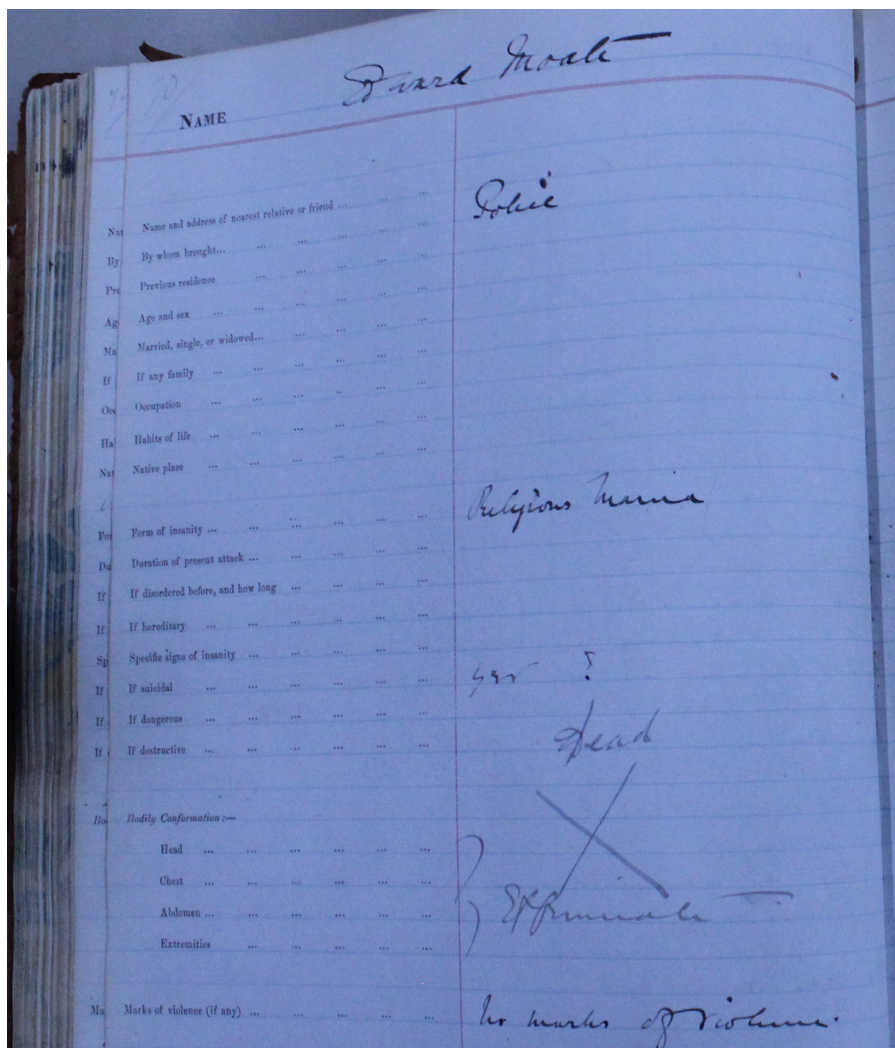 Edward Moate
NAME
Name and address of nearest relative or friend ... ... ...
Police
By whom brought... ... ... ... ... ...
Previous residence ... ... ... ... ...
Age and sex ... ... ... ... ... ...
Married, single, or widowed... ... ... ... ...
If any family ... ... ... ... ... ...
Occupation ... ... ... ... ... ...
Habits of life ... ... ... ... ... ...
Native place ... ... ... ... ... ...
Religious Mania
Form of insanity ... ... ... ... ... ...
Duration of present attack ... ... ... ... ...
If disordered before, and how long ... ... ... ...
If hereditary ... ... ... ... ... ...
Specific signs of insanity ... ... ... ... ...
If suicidal ... ... ... ... ... ... yes ?
If dangerous ... ... ... ... ... ...
If destructive ... ... ... ... ... ... Dead
Bodily Conformation :—
Head ... ... ... ... ... ...
Chest ... ... ... ... ... ...
Abdomen ... ... ... ... ... ... Effeminate
Extremities ... ... ... ... ...
Marks of violence (if any) ... ... ... ... ... No marks of violence.